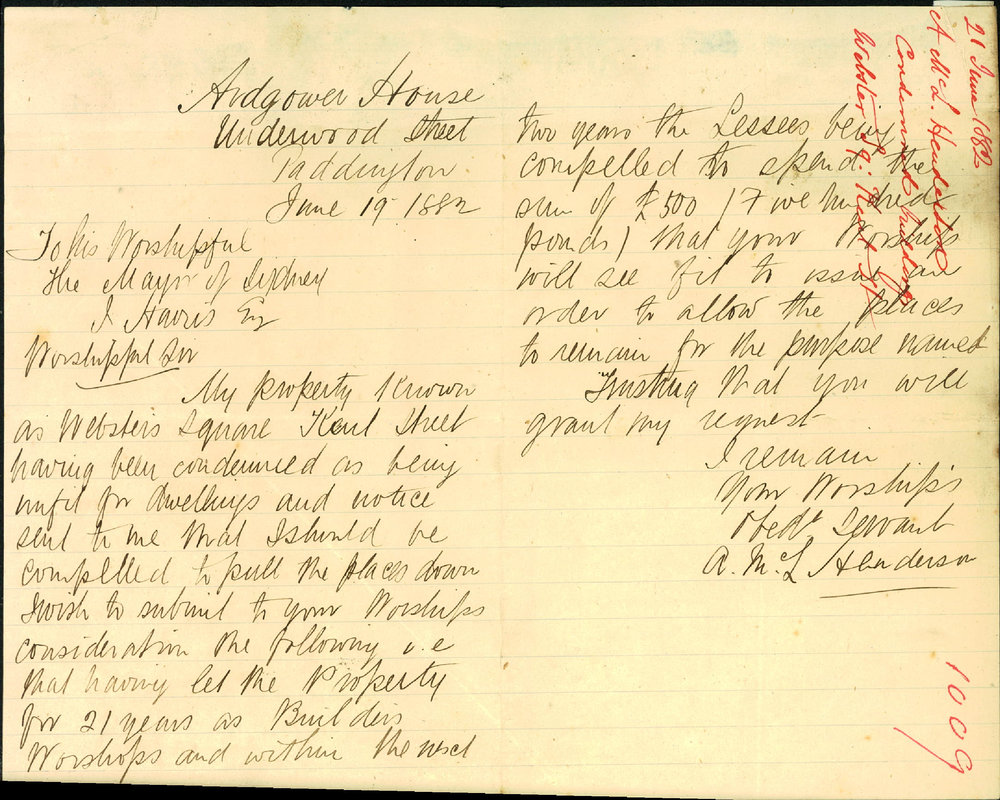 Ardgower House
Underwood Street
Paddington
June 19 1882
To his Worshipful
the Mayor of Sydney
J Harris Esq
Worshipful Sir
My property known
as Websters Square Kent Street
having been condemned as being
unfit for dwellings and notice
sent to me that I should be
compelled to pull the places down
I wish to submit to your Worships
consideration the following i.e
that having let the Property
for 21 years as Builders
Worshops and within the next
two years the Lessees being
compelled to spend the
sum of £500 (Five hundred
ponds) that your Worships
will see fit to issue an
order to allow the places
to remain for the purpose named
Trusting that you will
grant my request
I remain
Your Worship's
Obedt Servant
A. McL Henderson
21 June 1882
A McL. Henderson
Condemned buildings
Webster Sq: Kent St
1009